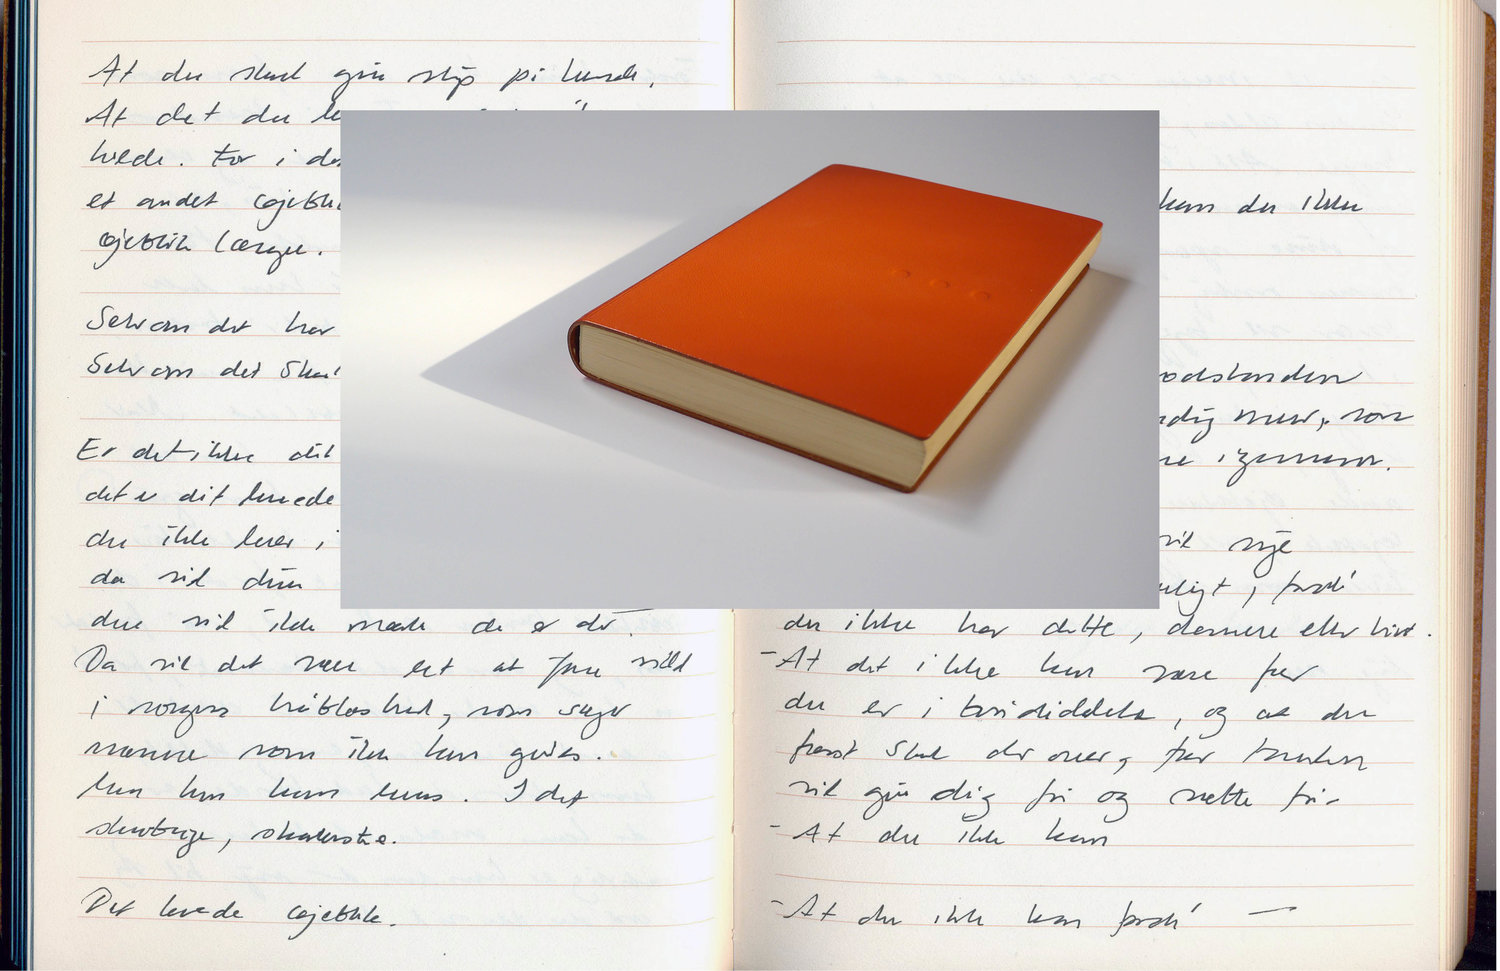 At du skal give slip på hende.
At det du le
hvede. For i de
et andet øjeblik
øjeblik længe.
Selvom det har
Selvom det skal
Er det ikke dit
det er dit levede
du ikke lever i
da vil din
due vil ikke mærke de er dø.
Da vil det være let at fare vild
i sorgens håbløshed, som siger
navnene som ikke kan gives.
kan kun leves. I det
skrøbelige,
Det levede øjeblik.
kan du ikke
odstanden
dig mere, som
re igennem.
vil sige
uligt, fordi
du ikke har dette, denne eller hint.
- At det ikke kan være før
du er i , og at du
først skal der over, før
vil give dig fri og sætte fri-
- At du ikke kan
- At du ikke kan fordi —